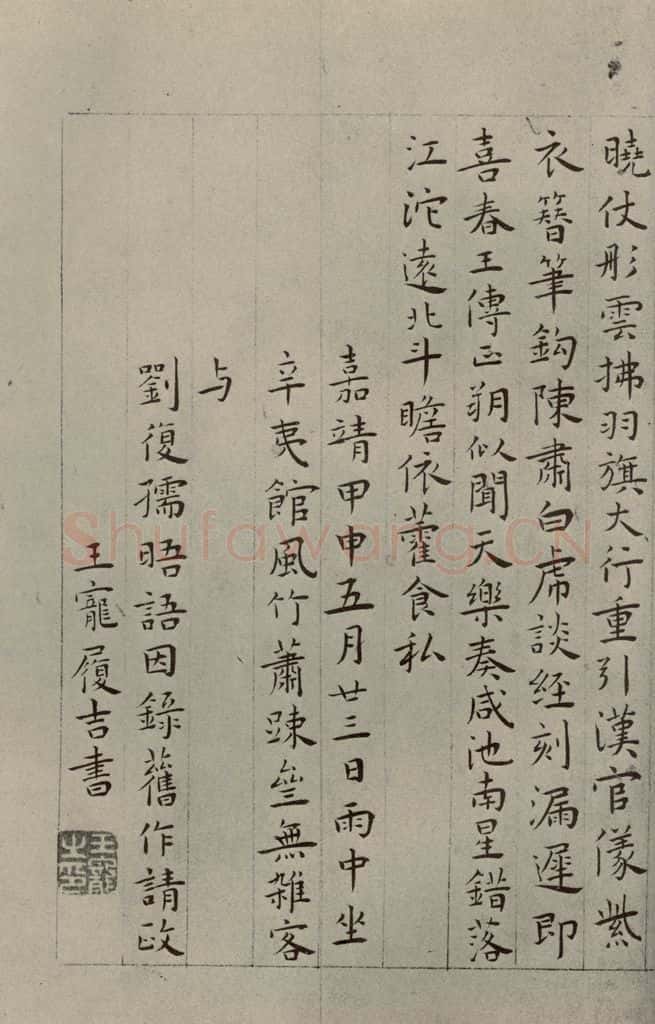 曉仗彤雲拂羽旗大行重引漢官儀紫
衣簪筆鈎陳肅白虎談經刻漏遲即
喜春王傳正朔似聞天樂奏咸池南星錯落
江沱遠北斗瞻依藿食私
嘉靖甲申五月廿三日雨中坐
辛夷館風竹蕭踈堂無雜客
与
劉復孺晤語因錄舊作請政
王寵履吉書
王寵之印
Shufawang.CN